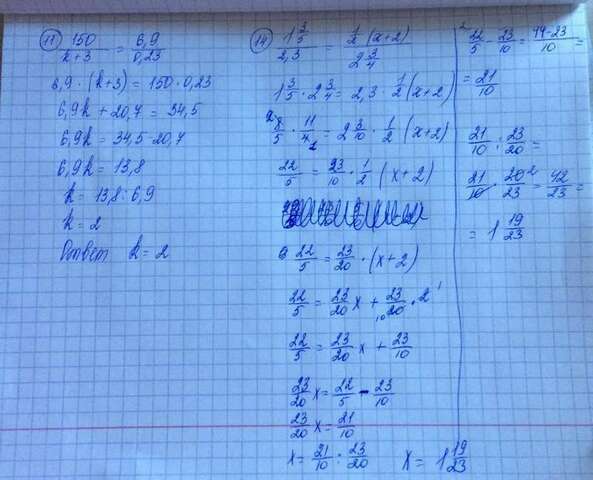 11) 150/(k+3) = 6,9/0,23
6,9 · (k+3) = 150 · 0,23
6,9k + 20,7 = 34,5
6,9k = 34,5-20,7
6,9k = 13,8
k = 13,8 : 6,9
k = 2
Ответ k = 2
14) 1 3/5 / 2,3 = 1/2 (x+2) / 2 3/4
1 3/5 · 2 3/4 = 2,3 · 1/2 (x+2)
8/5 · 11/4 = 2 3/10 · 1/2 (x+2)
22/5 = 23/10 · 1/2 (x+2)
22/5 = 23/20 · (x+2)
22/5 = 23/20 x + 23/20 · 2
22/5 = 23/20 x + 23/10
23/20 x = 22/5 - 23/10
23/20 x = 21/10
x = 21/10 : 23/20 x = 1 19/23
22/5 - 23/10 = 44-23/10 =
= 21/10
21/10 : 23/20 =
21/10 · 20/23 = 42/23 =
= 1 19/23